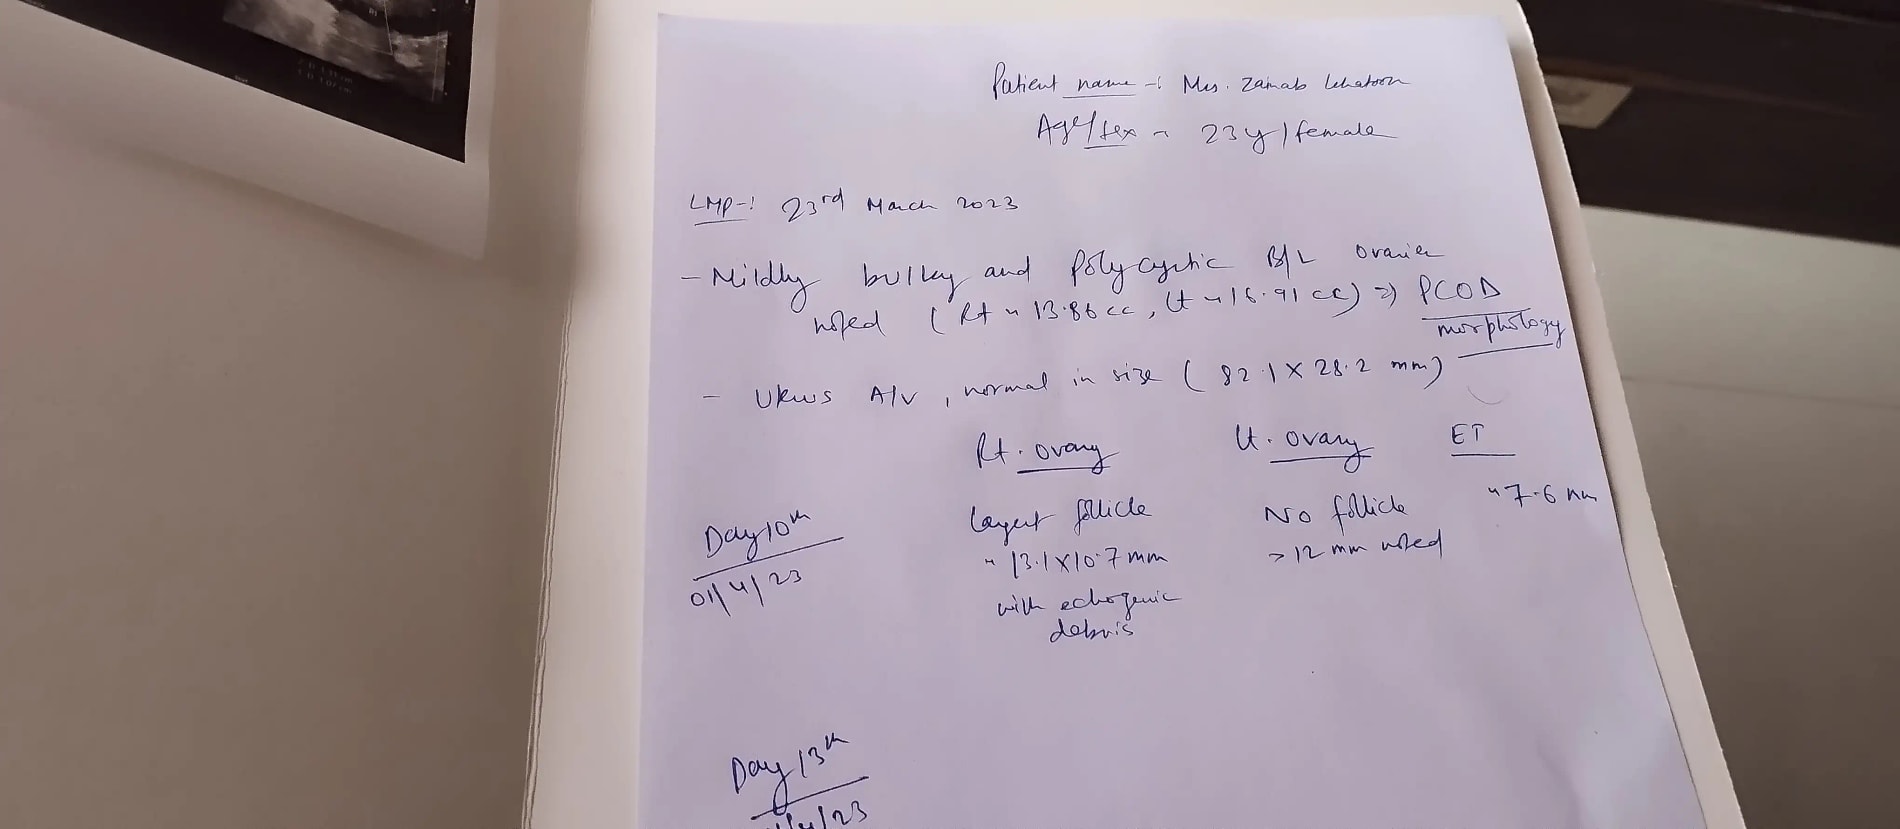 Patient name -: Mrs. Zainab Khatoon
Age/Sex ~ 23y/female
LMP-: 23rd March 2023
- Mildly bulky and polycystic B/L ovaries
noted (Rt ~ 13.86 cc, Lt ~ 16.91 cc) => PCOD
morphology
- Uterus A/V, normal in size (82.1 X 28.2 mm)
Rt. ovary Lt. ovary ET
Day 10th Largest follicle No follicle ~ 7.6 mm
01/4/23 ~ 13.1X10.7 mm >12 mm noted
with echogenic
debris
Day 13th
/4/23